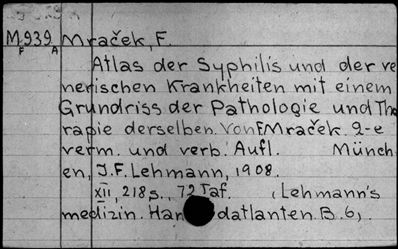 M939 Mraček, F.
F A
Atlas der Syphilis und der ve
nerischen Krankheiten mit einem
Grundriss der Pathologie und The
rapie derselben. Von F. Mraček. 2-e
verm. und verb. Aufl. Münch
en, J. F. Lehmann, 1908.
XII, 218 s., 72 Taf. (Lehmann's
medizin. Han datlanten. B. 6),